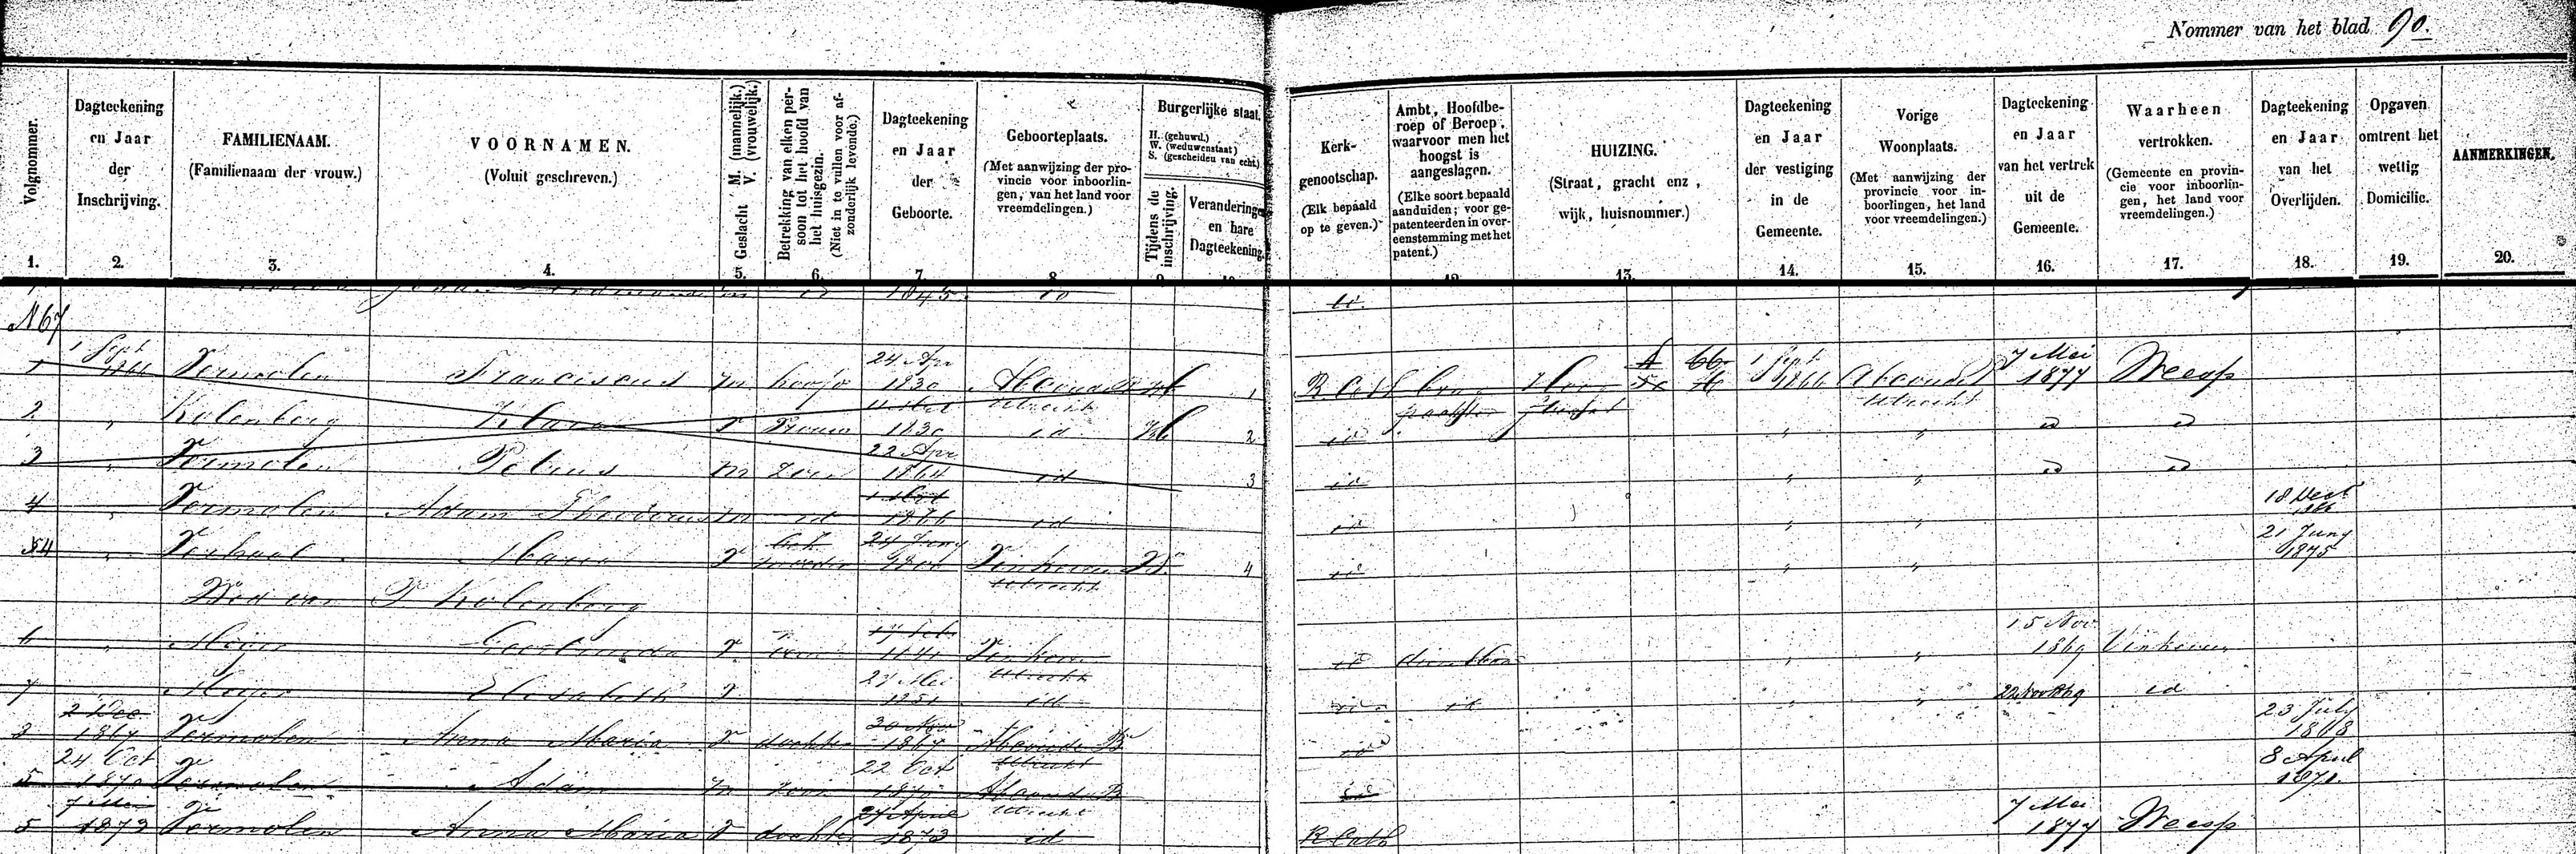 Nommer van het blad 90.
Volgnommer. 1.
Dagteekening en Jaar der Inschrijving. 2.
FAMILIENAAM. (Familienaam der vrouw.) 3.
VOORNAMEN. (Voluit geschreven.) 4.
Geslacht M. (mannelijk.) V. (vrouwelijk.) 5.
Betrekking van elken persoon tot het hoofd van het huisgezin. (Niet in te vullen voor afzonderlijk levende.) 6.
Dagteekening en Jaar der Geboorte. 7.
Geboorteplaats. (Met aanwijzing der provincie voor inboorlingen, van het land voor vreemdelingen.) 8
Burgerlijke staat.
H. (gehuwd.)
W. (weduwenstaat)
S. (gescheiden van echt.)
Tijdens de inschrijving.
Veranderingen en hare Dagteekening.
Kerkgenootschap. (Elk bepaald op te geven.)
Ambt, Hoofdberoep of Beroep, waarvoor men het hoogst is aangeslagen. (Elke soort bepaald aanduiden; voor gepatenteerden in overeenstemming met het patent.)
HUIZING. (Straat, gracht enz, wijk, huisnommer.) 13.
Dagteekening en Jaar der vestiging in de Gemeente. 14.
Vorige Woonplaats. (Met aanwijzing der provincie voor inboorlingen, het land voor vreemdelingen.) 15.
Dagteekening en Jaar van het vertrek uit de Gemeente. 16.
Waarheen vertrokken. (Gemeente en provincie voor inboorlingen, het land voor vreemdelingen.) 17.
Dagteekening en Jaar van het Overlijden. 18.
Opgaven omtrent het wettig Domicilie. 19.
AANMERKINGEN. 20.
1845 id
id
N 67
1 1 Sept 1866 Vermolen Franciscus m hoofd 24 Apr 1830 Abcoude Utrecht H 1 R Cath 1 Sept 1866 Abcoude Utrecht 7 Mei 1877 Weesp
2 " Kolenberg Klara V Vrouw 1830 id H 2 id " " id id
3 " Vermolen Petrus m zoon 22 Apr 1864 id 3 id " " id id
4 " Vermolen Adam Theodorus m id 1866 id id " " 18 Dec
54 " Verhaal Maria V moeder 24 Juny Vinkeveen Utrecht W 4 id " " 21 Juny 1875
Wed van P Kolenberg
6 " Meijer Geertruida V 1841 Vinkeveen Utrecht id dienstbare " " 15 Nov 1869 Vinkeveen
7 Meijer Elisabeth V 27 Mei 1851 id id id " " 22 Nov 1869 id
2 Dec 1867 Vermolen Anna Maria V dochter 30 Nov 1867 Abcoude B Utrecht id 23 July 1868
5 24 Oct 1870 Vermolen Adam m zoon 22 Oct 1870 Abcoude B Utrecht id 8 April 1871.
5 1873 Vermolen Anna Maria V dochter 27 April 1873 id R Cath 7 Mei 1877 Weesp